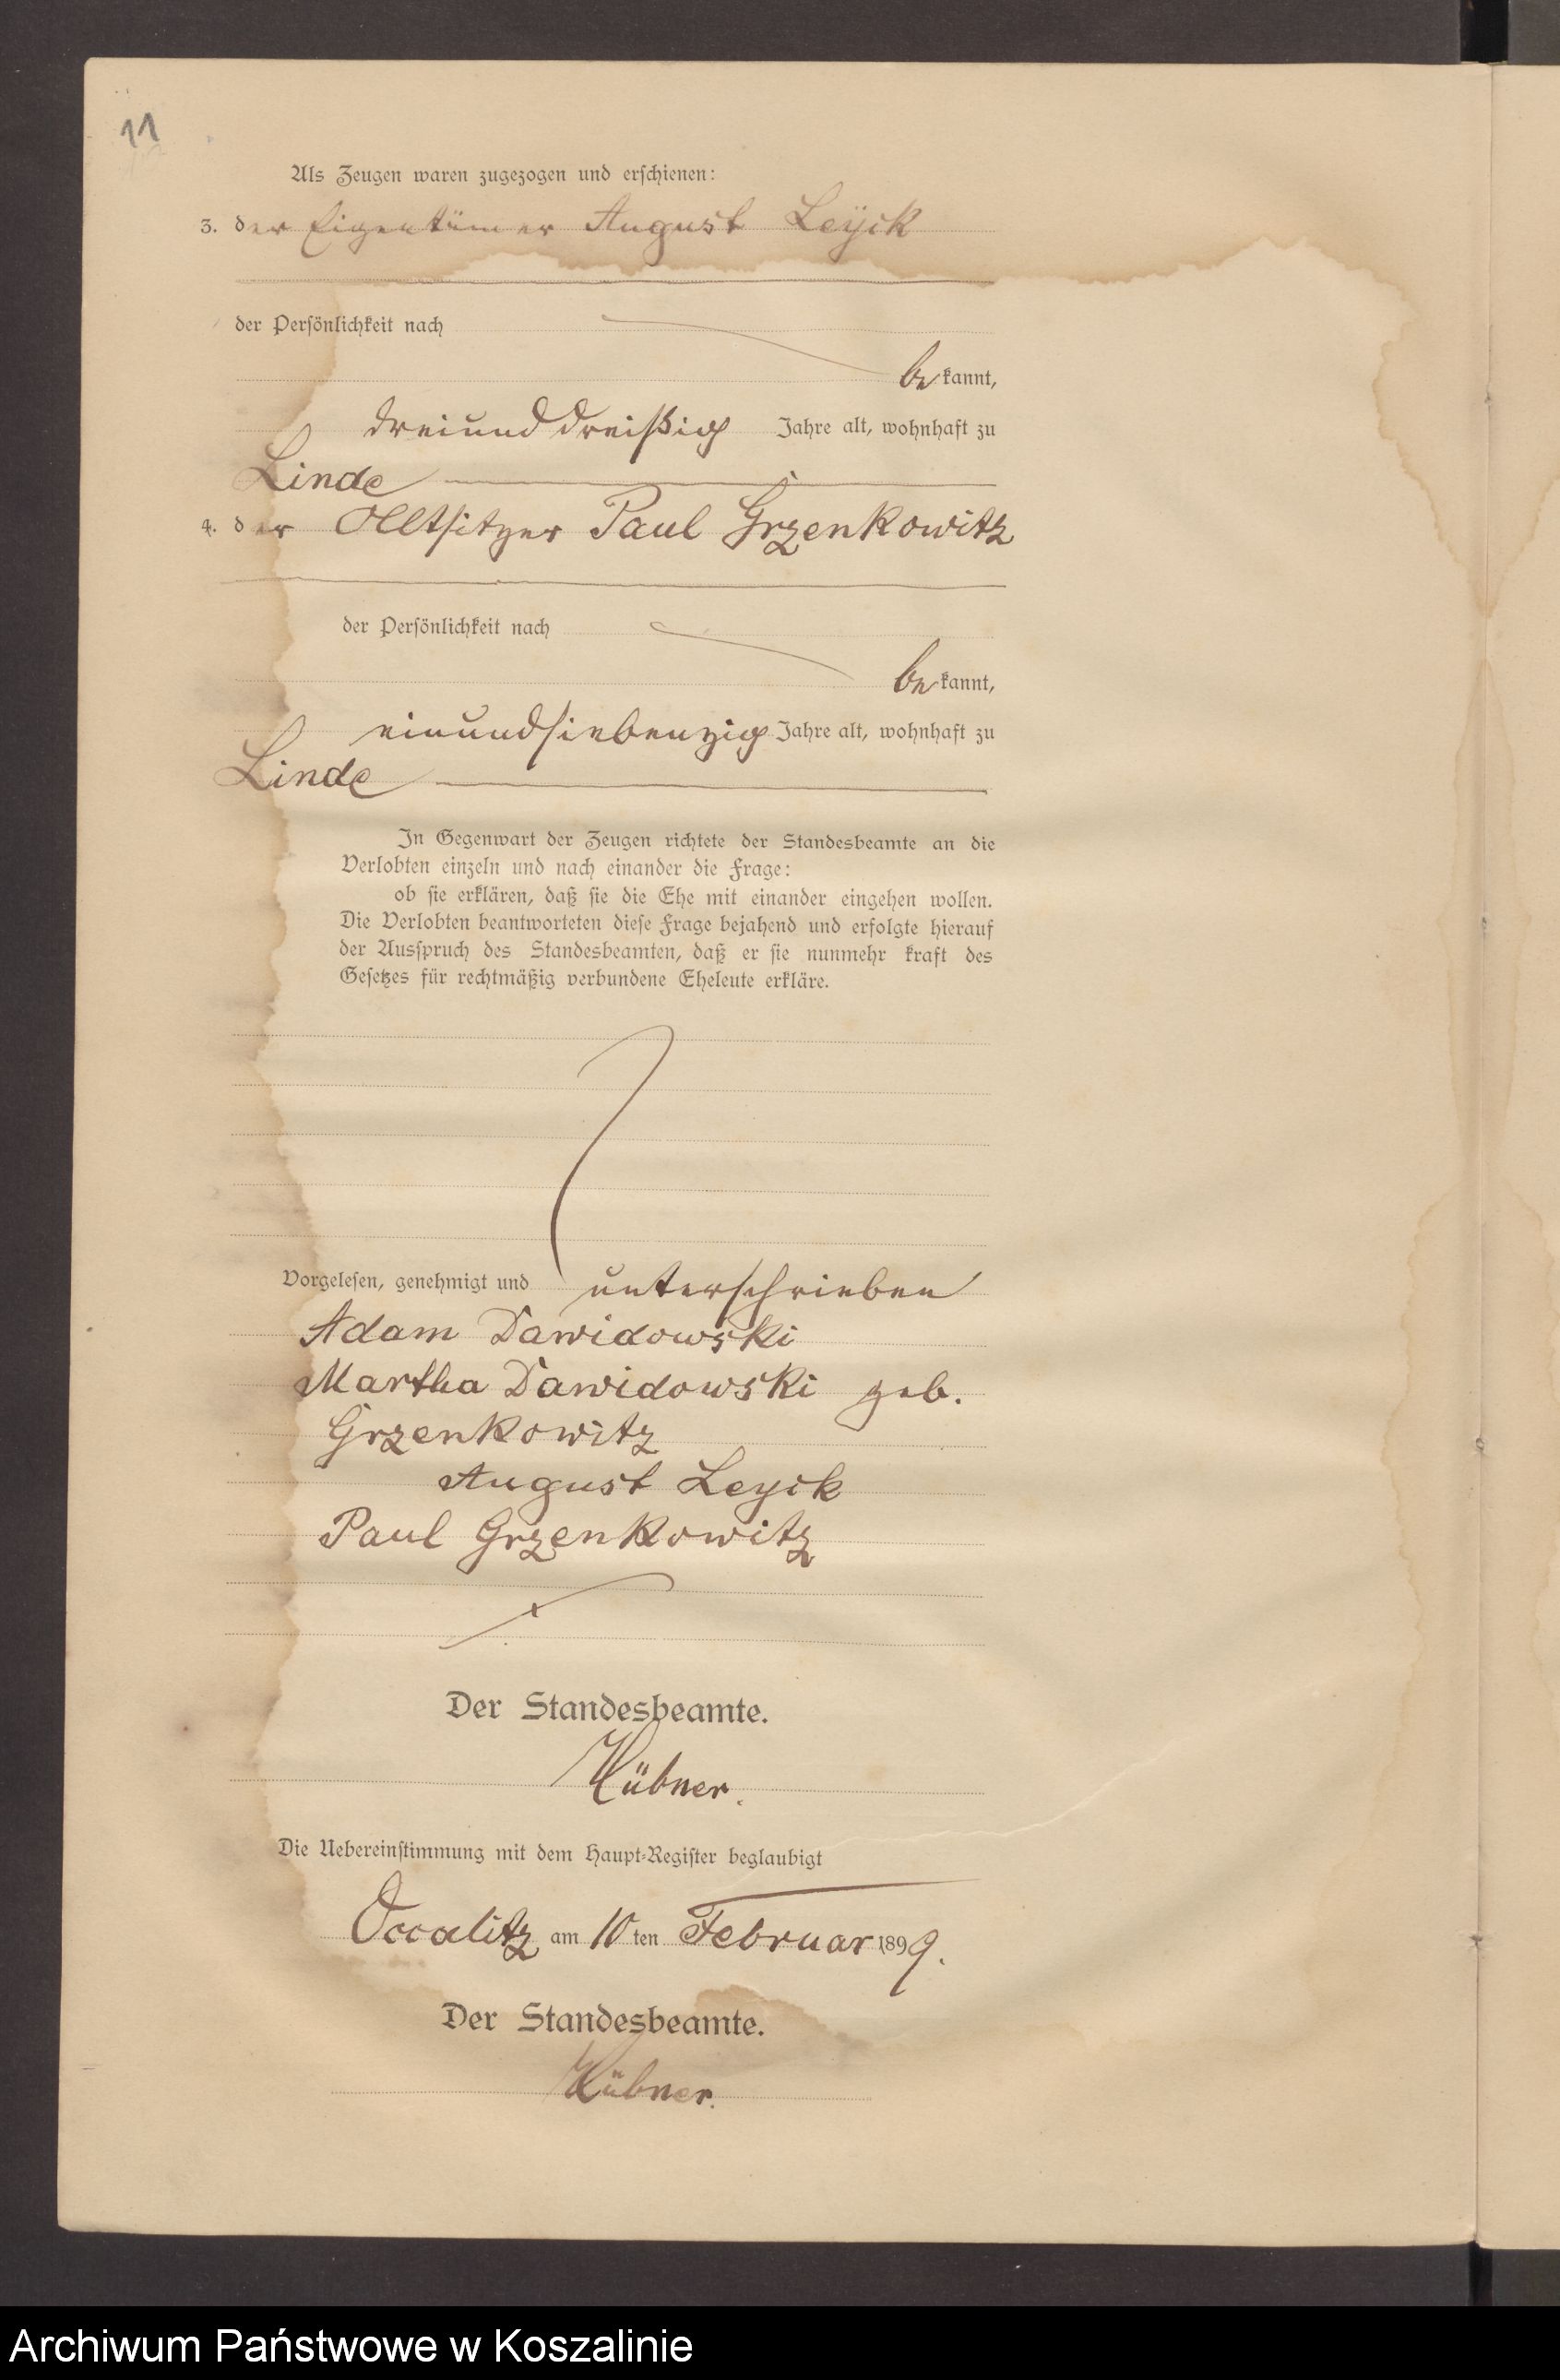 11
Als Zeugen waren zugezogen und erschienen:
3. der Eigentümer August Leÿik
der Persönlichkeit nach
be kannt,
dreiunddreißig Jahre alt, wohnhaft zu
Linde
4. der Altsitzer Paul Grzenkowitz
der Persönlichkeit nach
be kannt,
einundsiebenzig Jahre alt, wohnhaft zu
Linde
In Gegenwart der Zeugen richtete der Standesbeamte an die
Verlobten einzeln und nach einander die Frage:
ob sie erklären, daß sie die Ehe mit einander eingehen wollen.
Die Verlobten beantworteten diese Frage bejahend und erfolgte hierauf
der Ausspruch des Standesbeamten, daß er sie nunmehr kraft des
Gesetzes für rechtmäßig verbundene Eheleute erkläre.
Vorgelesen, genehmigt und unterschrieben
Adam Dawidowski
Martha Dawidowski geb.
Grzenkowitz
August Leyik
Paul Grzenkowitz
Der Standesbeamte.
Hübner.
Die Uebereinstimmung mit dem Haupt-Register beglaubigt
Occalitz am 10 ten Februar 1899.
Der Standesbeamte.
Hübner.
Archiwum Państwowe w Koszalinie